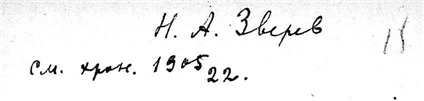 Н. А. Зверев
см. хрон. 1905 22.